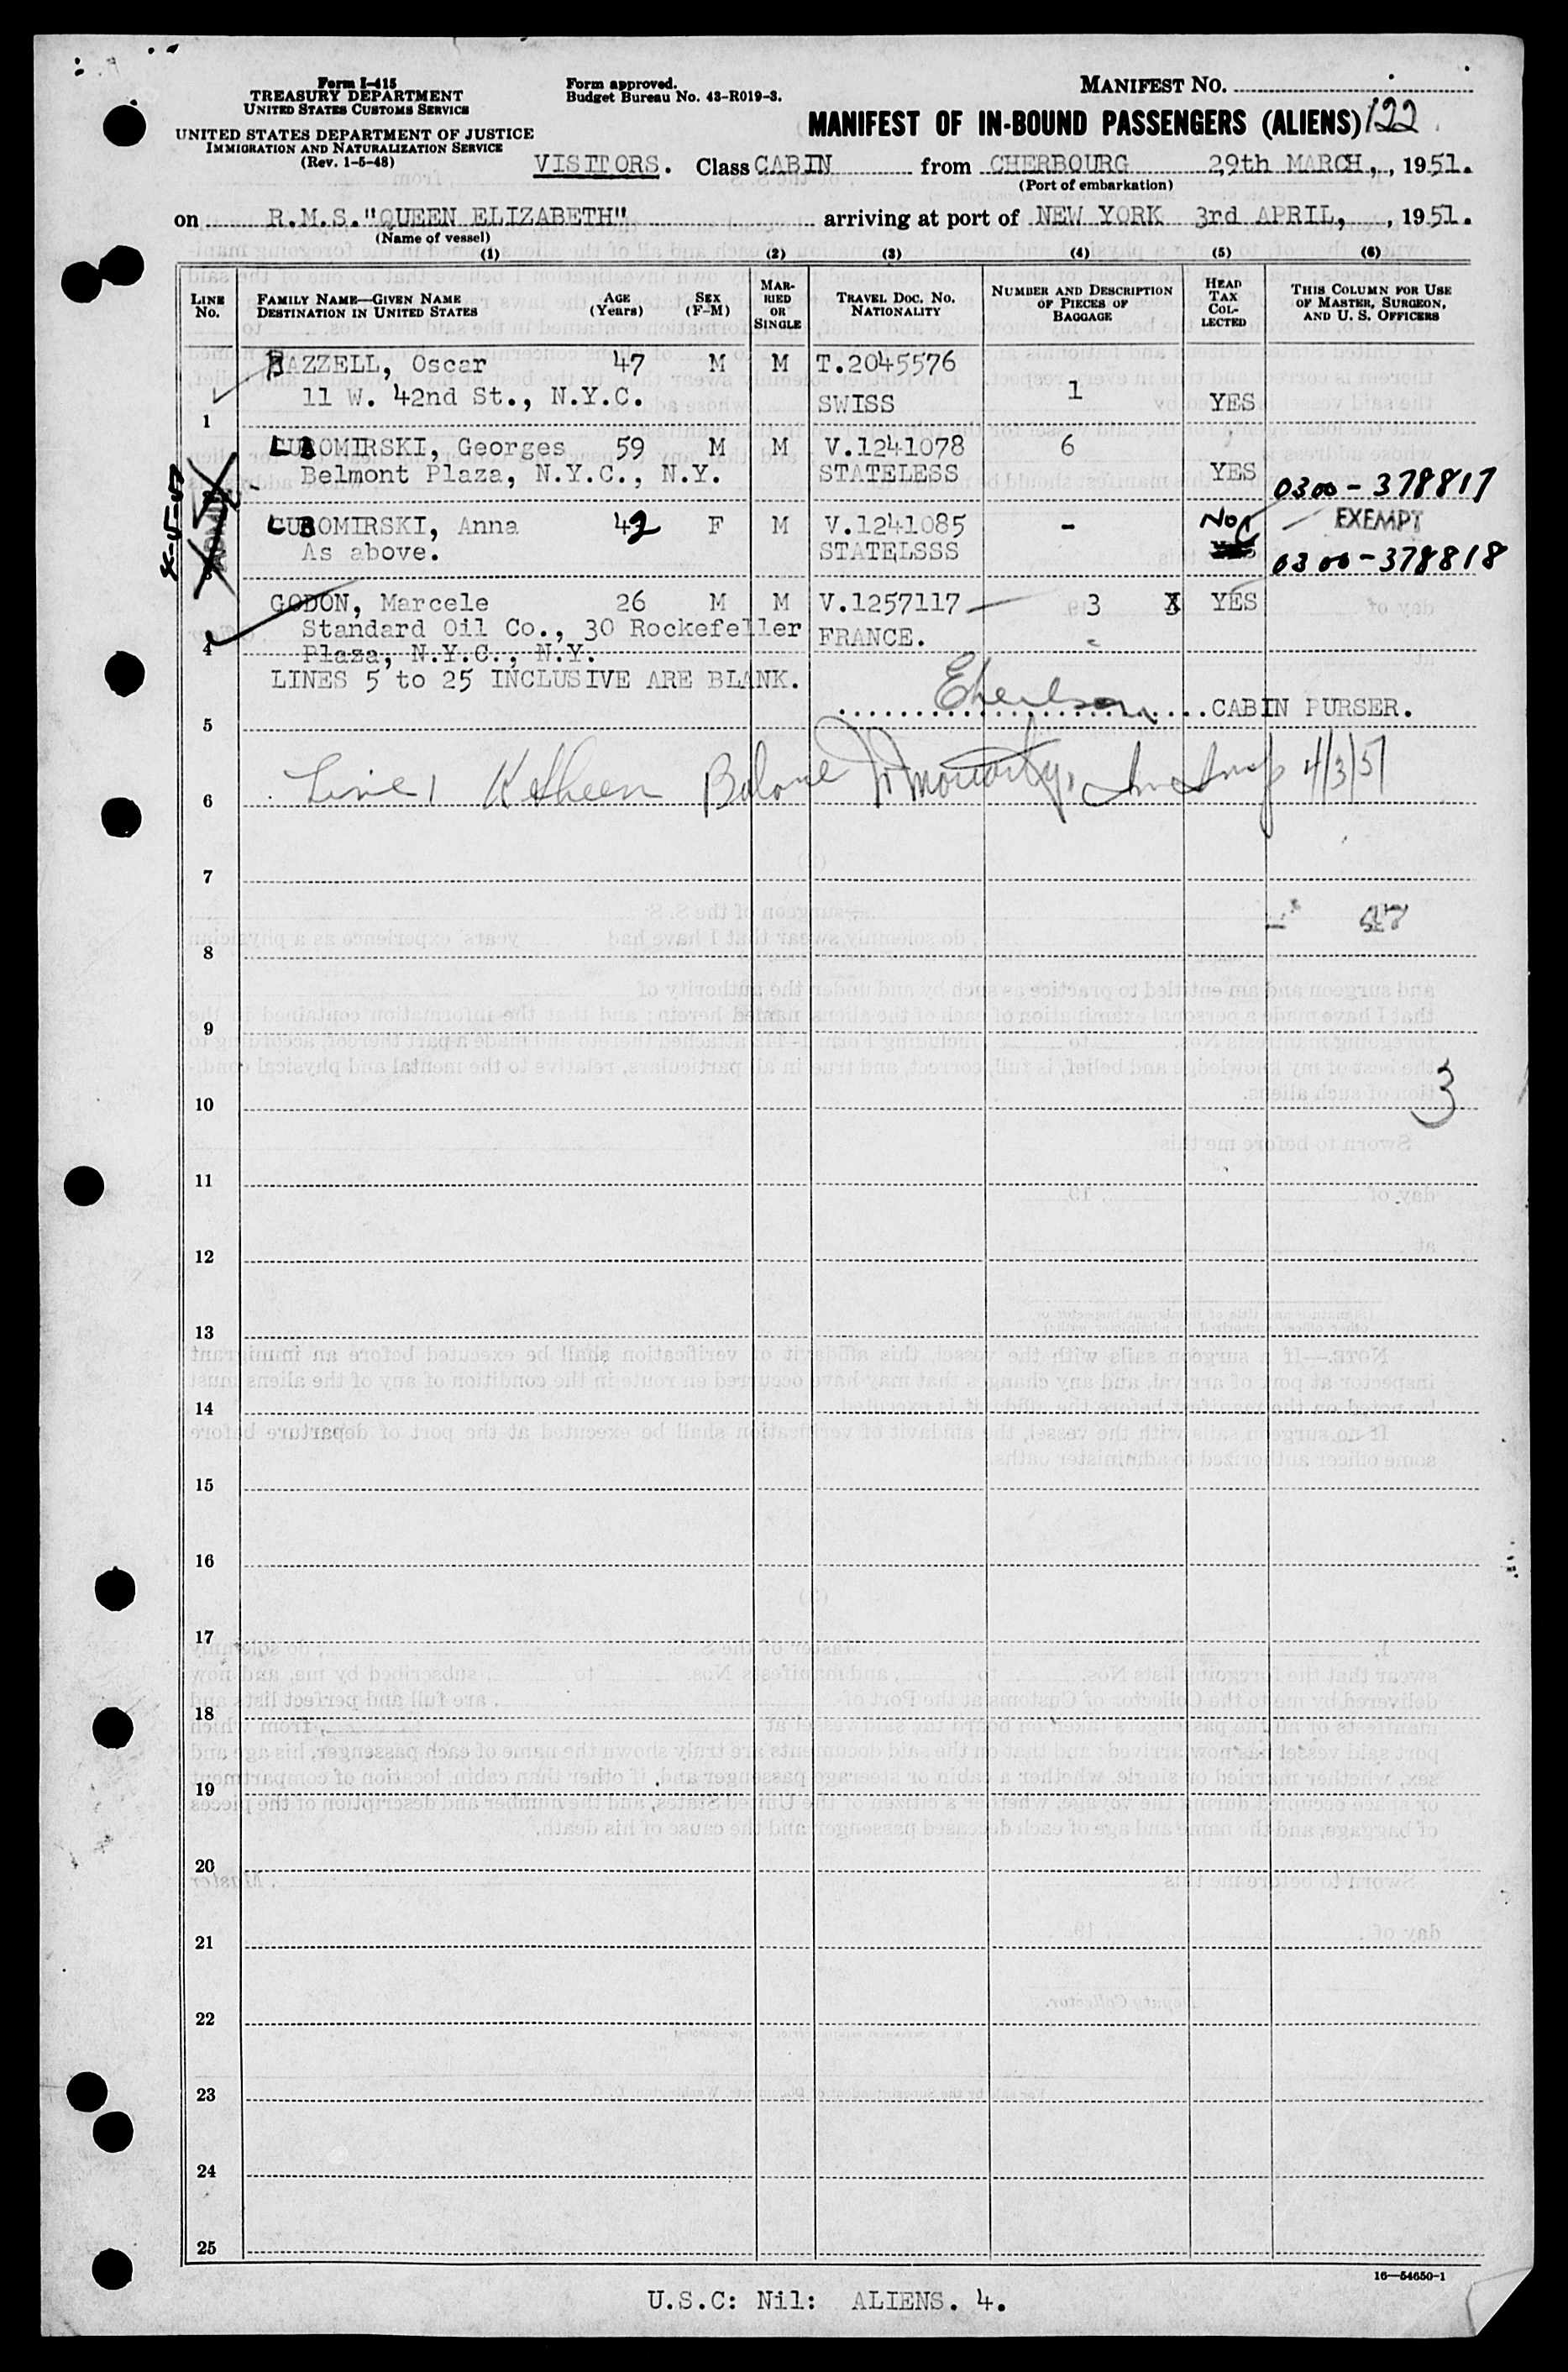 Form I-415
TREASURY DEPARTMENT
UNITED STATES CUSTOMS SERVICE
UNITED STATES DEPARTMENT OF JUSTICE
IMMIGRATION AND NATURALIZATION SERVICE
(Rev. 1-5-48)
Form approved.
Budget Bureau No. 43-R019-3.
MANIFEST NO.
MANIFEST OF IN-BOUND PASSENGERS (ALIENS) 122
VISITORS. Class CABIN from CHERBOURG 29th MARCH, , 1951.
(Port of embarkation)
on R.M.S."QUEEN ELIZABETH" arriving at port of NEW YORK 3rd APRIL, , 1951.
(Name of vessel)
(1) (2) (3) (4) (5) (6)
LINE No. FAMILY NAME—GIVEN NAME DESTINATION IN UNITED STATES AGE (Years) SEX (F-M) MARRIED OR SINGLE TRAVEL DOC. No. NATIONALITY NUMBER AND DESCRIPTION OF PIECES OF BAGGAGE HEAD TAX COLLECTED THIS COLUMN FOR USE OF MASTER, SURGEON, AND U. S. OFFICERS
BAZZELL, Oscar 47 M M T.2045576
11 W. 42nd St., N.Y.C. SWISS 1 YES
1
LUBOMIRSKI, Georges 59 M M V.1241078 6
Belmont Plaza, N.Y.C., N.Y. STATELESS YES 0300-378817
LUBOMIRSKI, Anna 42 F M V.1241085 - No EXEMPT
As above. STATELSSS YES 0300-378818
GODON, Marcele 26 M M V.1257117 3 X YES
Standard Oil Co., 30 Rockefeller FRANCE.
4 Plaza, N.Y.C., N.Y.
LINES 5 to 25 INCLUSIVE ARE BLANK.
CABIN PURSER.
5
Line 1 Balance Moriarty, 4/3/51
6
7
8
9
3
10
11
12
13
14
15
16
17
18
19
20
21
22
23
24
25
16—54650-1
U.S.C: Nil: ALIENS. 4.